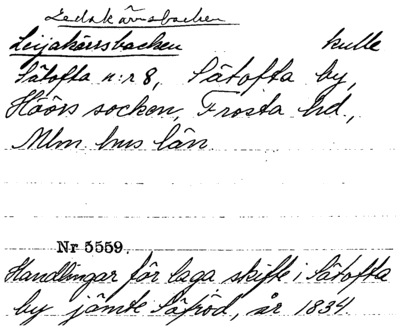 Ledakärrsbacken
Leijakärrsbacken kulle
Sätofta n:r 8, Sätofta by,
Höörs socken, Frosta hd.,
Mlm. hus län
Nr 5559.
Handlingar för laga skifte i Sätofta
by jämte Säfröd, år 1834